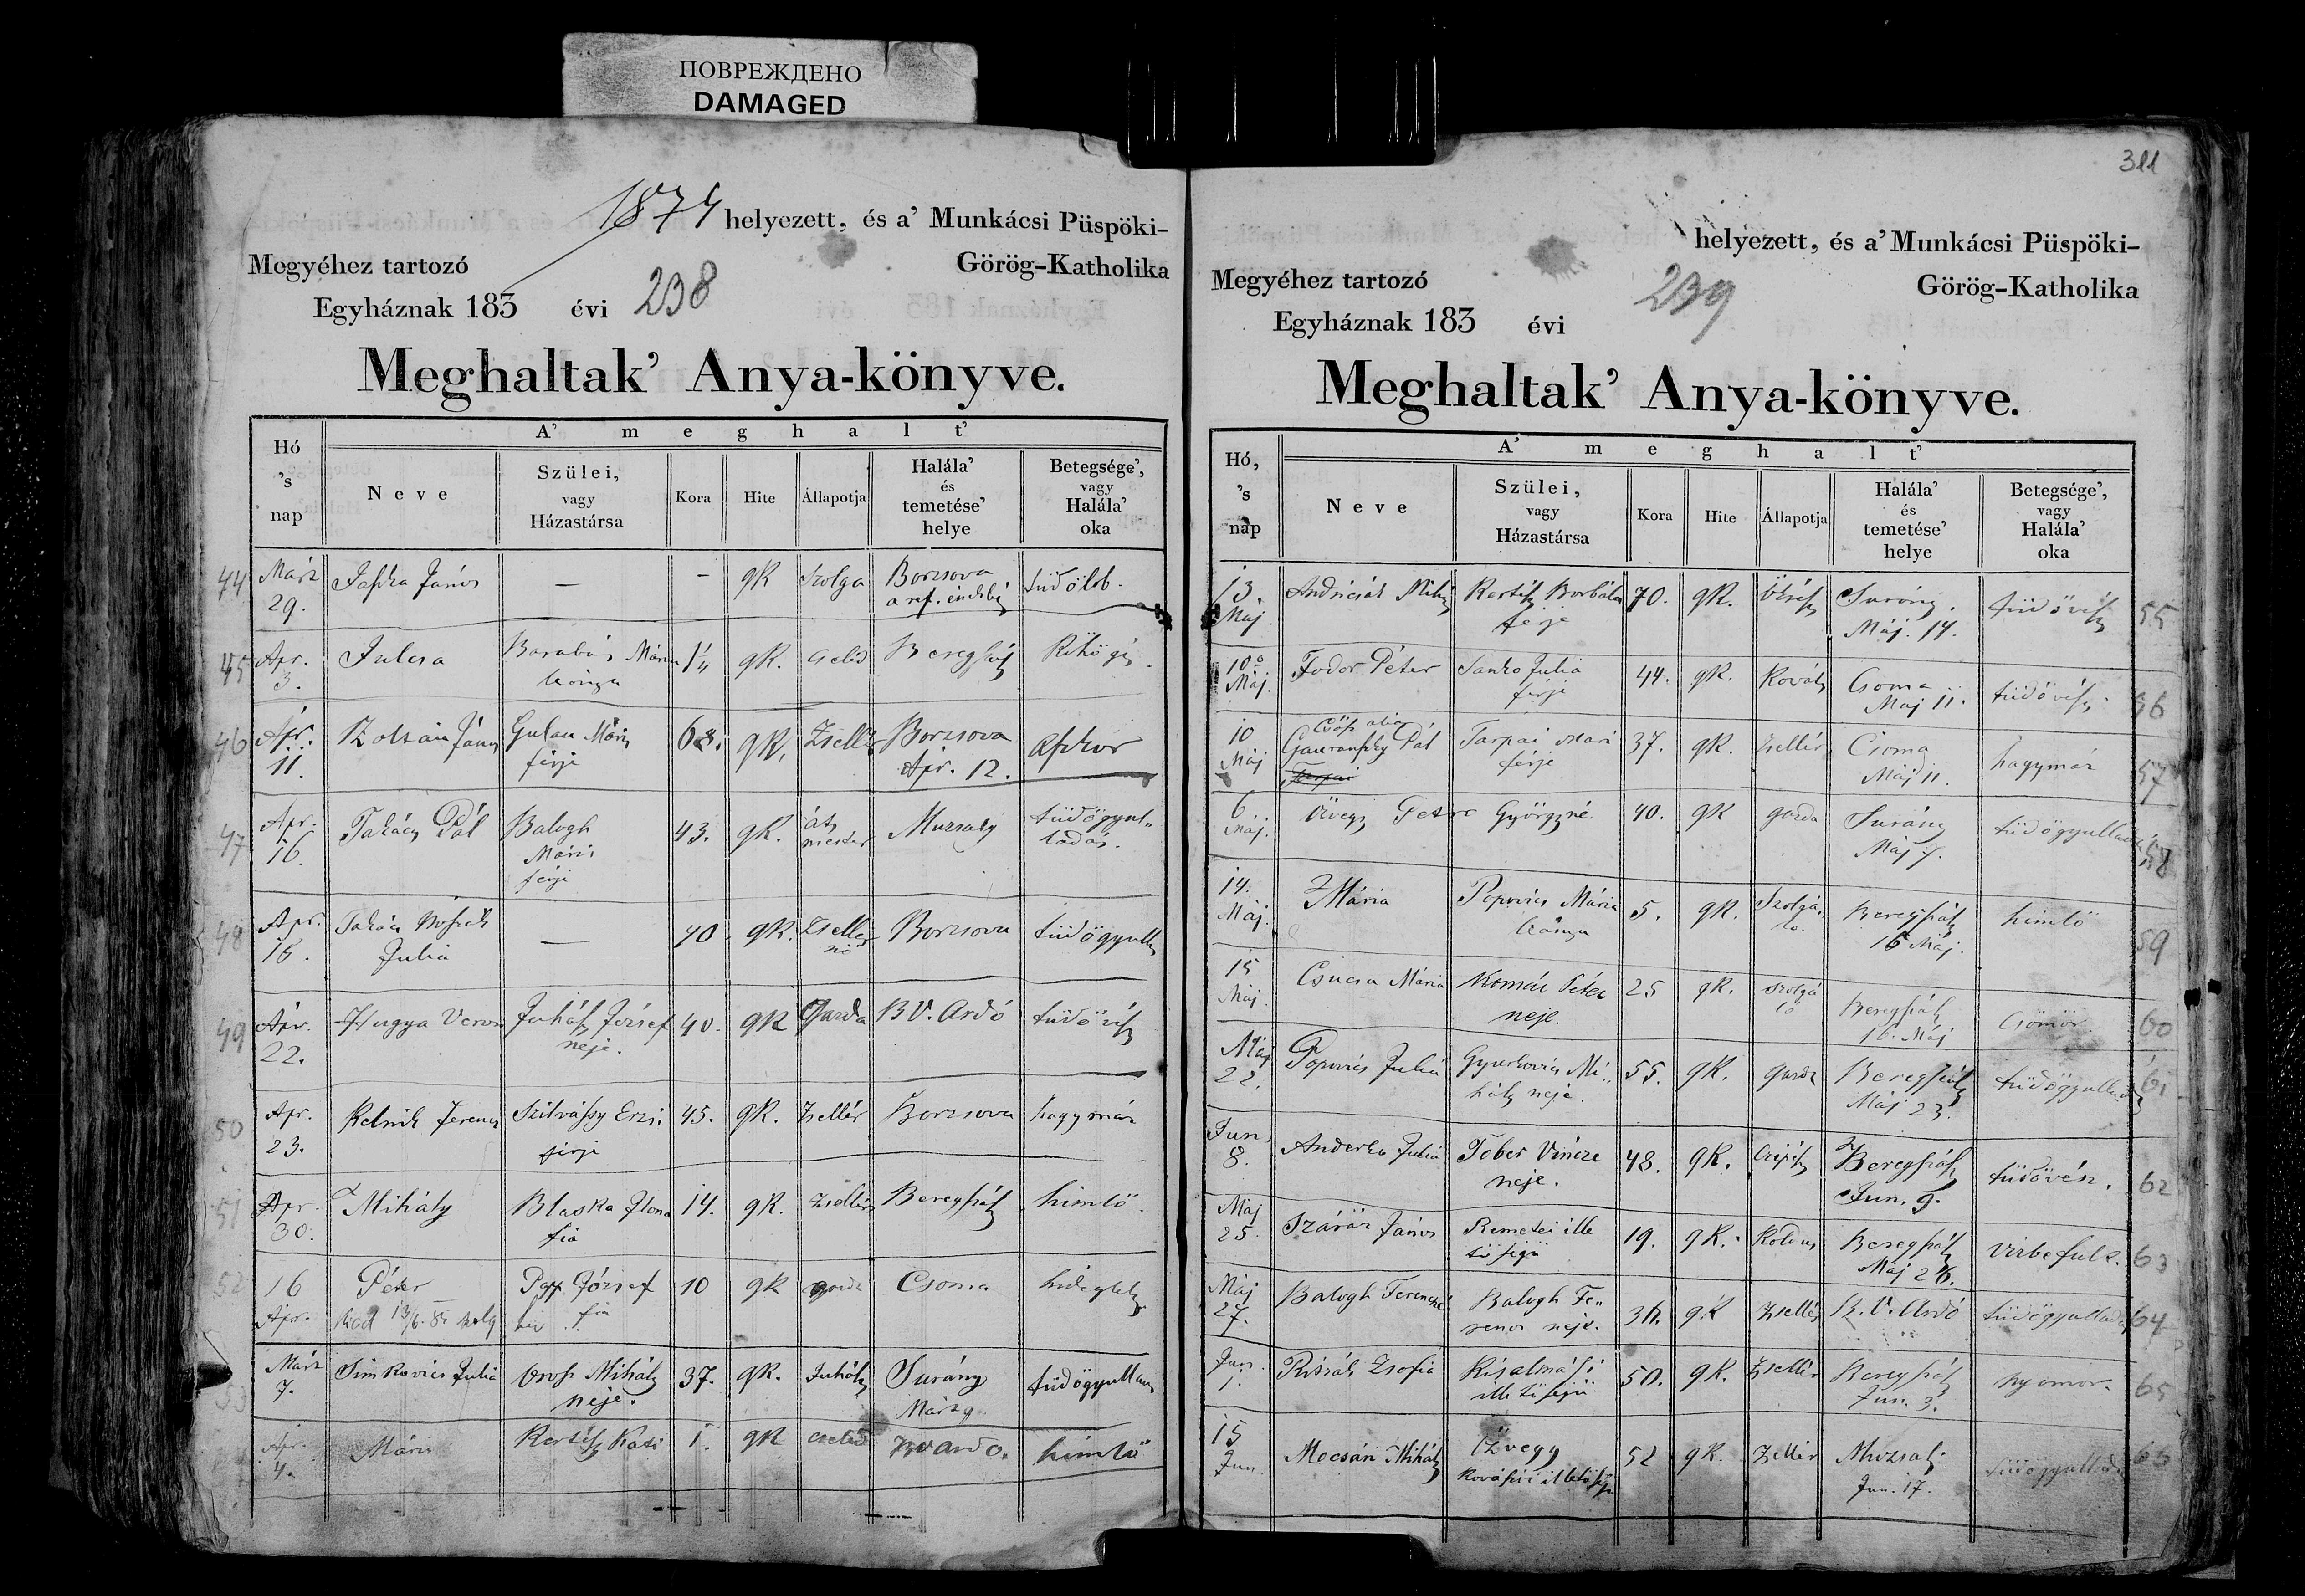 ПОВРЕЖДЕНО
DAMAGED
1874 helyezett, és a' Munkácsi Püspöki-
Megyéhez tartozó Görög-Katholika
Egyháznak 183 évi 238
Meghaltak' Anya-könyve.
Hó 's nap
A' meghalt'
Neve
Szülei, vagy Házastársa
Kora
Hite
Állapotja
Halála' és temetése' helye
Betegsége', vagy Halála' oka
44 Márz 29. János — - gK Szolga Borzsova a ref.
45 Apr. 3. Julcsa Barabás Mária gK. cseléd Beregszász
46 Apr. 11. János Gulan Máris férje gK. Zsellér Borzsova Apr. 12.
47 Apr. 16. Takács Pál Balogh Máris férje 43. gK. ács mester Muzsaly tüdőgyul„ ladás.
48 Apr. 16. Takács Julia — 40. gK. Zseller nő Borzsova
49 Apr. 22. Hugya Veron Juhász József neje. 40. gK Gazda B.V. Ardó tüdővész
50 Apr. 23. Ferencz Szilvássy Erzsi férje 45. gK. Zsellér Borzsova hagymáz
51 Apr. 30. Mihály Blaska Ilona fia 14. gK. Zsellér Beregszász himlő
52 16 Apr. Péter Papp József fia 10 gK gazda Csoma hideglelés
Márz 7. Simkovics Julia Oross Mihály neje. 37. gK. Juhász Surány Márz 9
Apr. 4. Máris Kertész Kati 1. gK cseléd BV Ardó. himlő
311
helyezett, és a' Munkácsi Püspöki-
Megyéhez tartozó Görög-Katholika
Egyháznak 183 évi 239
Meghaltak' Anya-könyve.
Hó, 's nap
A' meghalt'
Neve
Szülei, vagy Házastársa
Kora
Hite
Állapotja
Halála' és temetése' helye
Betegsége', vagy Halála' oka
13. Máj. Andricsák Mihály Kertész Borbála férje 70. gK. Surány. Máj. 14. tüdővész 55
10 Máj. Fodor Péter Sanko Julia férje 44. gK. Kovács Csoma Maj 11. tüdővész. 56
10 Máj Csősz alias Pál Tarpai Mari férje 37. gK. zsellér Csoma Máj 11. hagymáz 57
6. Máj. Özvegy Petro Györgyné. 40. gK gazda Surány Máj 7. tüdőgyulladás 58
14. Máj. Mária Popovics Mária leánya 5. gK. Szolgá„ ló. Beregszász 16 Máj. himlő 59
15 Máj Csucsa Mária Komár Péter neje. 25 gK. Szolgá ló Beregszász 16. Máj Csömör. 60
Máj 22. Popovics Julia Gyurkovics Mi„ hály neje. 55. gK. gazda Beregszász Máj 23. tüdőgyulladás 61
Jun. 8. Anderko Julia Tober Vincze neje. 48. gK. Beregszász Jun. 9. tüdővész. 62
Máj 25. János Remetei ille tőségü 19. gK. Koldus Beregszász Máj 26. 63
Máj 27. Balogh Ferenczné Balogh Fe„ rencz neje. 36. gK Zsellér B.V. Ardó tüdőgyulladás 64
Jun. 1. Zsofia Kisalmási illetőségü 50. gK. Zsellér Beregszász Jun. 3. 65
15 Jun. Mocsán Mihály Özvegy Kovászói illetőségü 52 gK. Zsellér Muzsaly Jun. 17. tüdőgyulladás 66